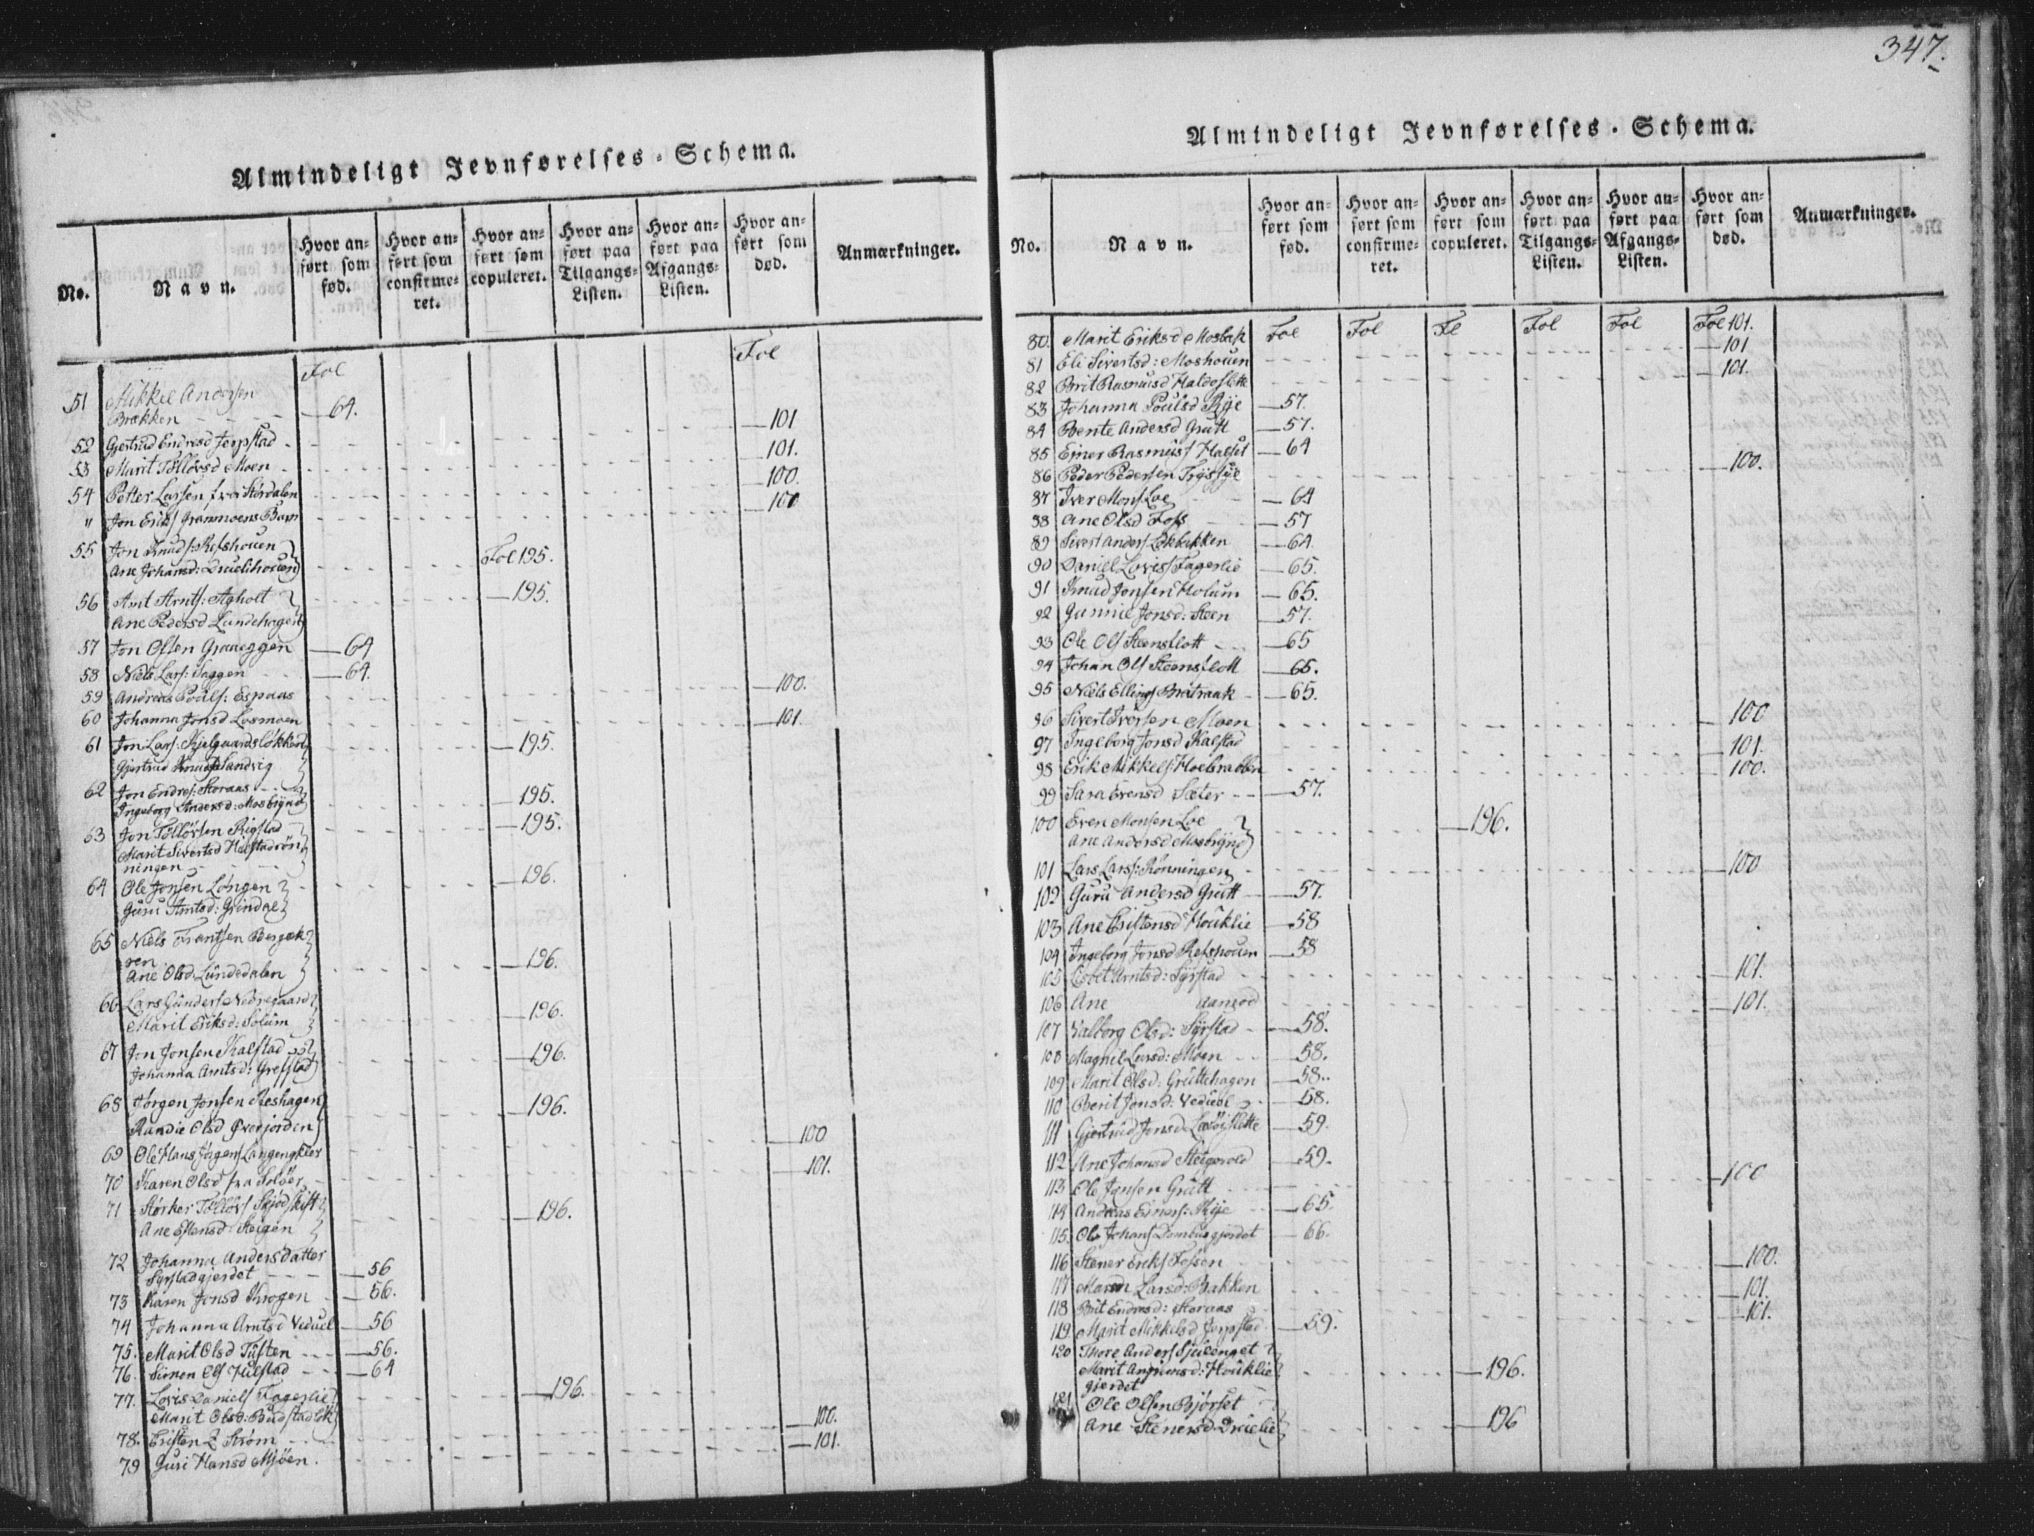 Almindeligt Jevnførelses-Schema.
No. Navn. Hvor anført som fød. Hvor anført som confirmeret. Hvor anført som copuleret. Hvor anført paa Tilgangs-Listen. Hvor anført paa Afgangs-Listen. Hvor anført som død. Anmærkninger.
Fol Fol
51 Mikkel Andersen
Brækken 64.
52 Gjertrud Endresd Jerpstad 101
53 Marit Tolløvsd Moen 101.
54 Petter Larsen fra Størdalen 100.
" Jon Eriks Grammoens Barn 100
55 Jon Knuds: Refshouen Fol 195.
Ane Johansd:
56 Arnt Arnts: Agholt 195.
Ane Pedersd Lundehagen
57 Jon Olsen Graneggen 64
58 Niels Lars: Vaggen 64.
59 Andreas Pouls: Espaas 100.
60 Johanna Jonsd Losmoen 101.
61 Jon Lars: Kjelgaardsløkken 195.
Gjertrud Knudsd Sandvig
62 Jon Endres: Storaas 195.
Ingeborg Andersd: Mosbrynd
63 Jon Tolløvsen Rigstad 195.
Marit Sivertsd Halstadrön
ningen
64 Ole Jonsen Løngen 196.
Guru Arntsd: Grindal
65 Niels Frantsen Bergek
ren 196.
Ane Olsd: Lundedalen
66 Lars Gunders Nedregaard 196.
Marit Eriksd: Solum
67 Jon Jonsen Kalstad 196.
Johanna Arntsd: Grefstad
68 Jørgen Jonsen Reshagen 196.
Randie Olsd Øverjorden
69 Ole Hans Jörgens Langengkler 100
70 Karen Olsd fra Soløer 101.
71 Størker Tolløvs Skjødskift 196.
Ane Estensd: Steigen
72 Johanna Andersdatter
Syrstadgjerdet 56
73 Karen Jonsd Krogen 56.
74 Johanna Arntsd Veduel 56
75. Marit Olsd Tusten 56.
76. Simen Ols Hilstad 64
77. Lovis Daniels Fagerlie 196.
Marit Olsd: Budstadløk
78. Cristen Z Strøm 100.
79 Guri Hansd Mjöen. 101.
347.
Almindeligt Jevnførelses-Schema.
No. Navn. Hvor anført som fød. Hvor anført som confirmeret. Hvor anført som copuleret. Hvor anført paa Tilgangs-Listen. Hvor anført paa Afgangs-Listen. Hvor anført som død. Anmærkninger.
80. Marit Eriksd Mosbak Fol Fol Fl Fol Fol Fol 101.
81 Eli Sivertsd: Moshouen 101
82 Brit Rasmusd Haldoslette 101.
83 Johanna Poulsd Rye 57.
84 Bente Andersd Grutt 57.
85 Einer Rasmus Halset 64
86 Peder Pedersen Trysslye 100.
87 Iver Mons Loe 64
88 Ane Olsd Foss 57
89 Sivert Anders Løkbækken 64
90 Daniel Lovis Fagerlie 65.
91 Knud Jonsen Holum 65.
92 Gunnil Jonsd: Steen 57.
93 Ole Ols Steenslott 65
94 Johan Ols Steenslott 65.
95 Niels Ellings Bratraak 65.
96 Sivert Iversen Moen 100
97 Ingeborg Jonsd Kalstad 101.
98 Erik Mikkels: Hoelsrabben 100.
99 Sara Evensd Sæter 57.
100 Even Monsen Loe 196.
Ane Andersd Mosbrynd
101 Lars Lars: Rønningen 100
102 Guru Andersd Grutt 57.
103 Ane Cristensd Houklie 58
104 Ingeborg Jonsd Refshouen 58
105 Lisbet Arntsd: Syrstad 101.
106 Ane Aaneød 101.
107 Valborg Olsd: Syrstad 58.
108 Magnil Larsd: Moen 58.
109 Marit Olsd: Gruttehagen 58.
110 Berit Jonsd: Veduel 58.
111 Gjertrud Jonsd Lesøislette 59.
112 Ane Johansd Steigevold 59.
113 Ole Jonsen Grutt 100
114 Andreas Einers: Rye 65.
115. Ole Johans Dombusgjerdet 66.
116 Stener Eriks Fossen 100.
117 Maren Larsd: Bakken 101.
118 Brit Endresd: Storaas 101.
119 Marit Mikkelsd Jerpstad 59.
120 Thore Anders Gjulenget
Marit Anfinnsd: Houklie 196.
gjerdet
121 Ole Olsen Bjørset
Ane Stenersd Drielie 196